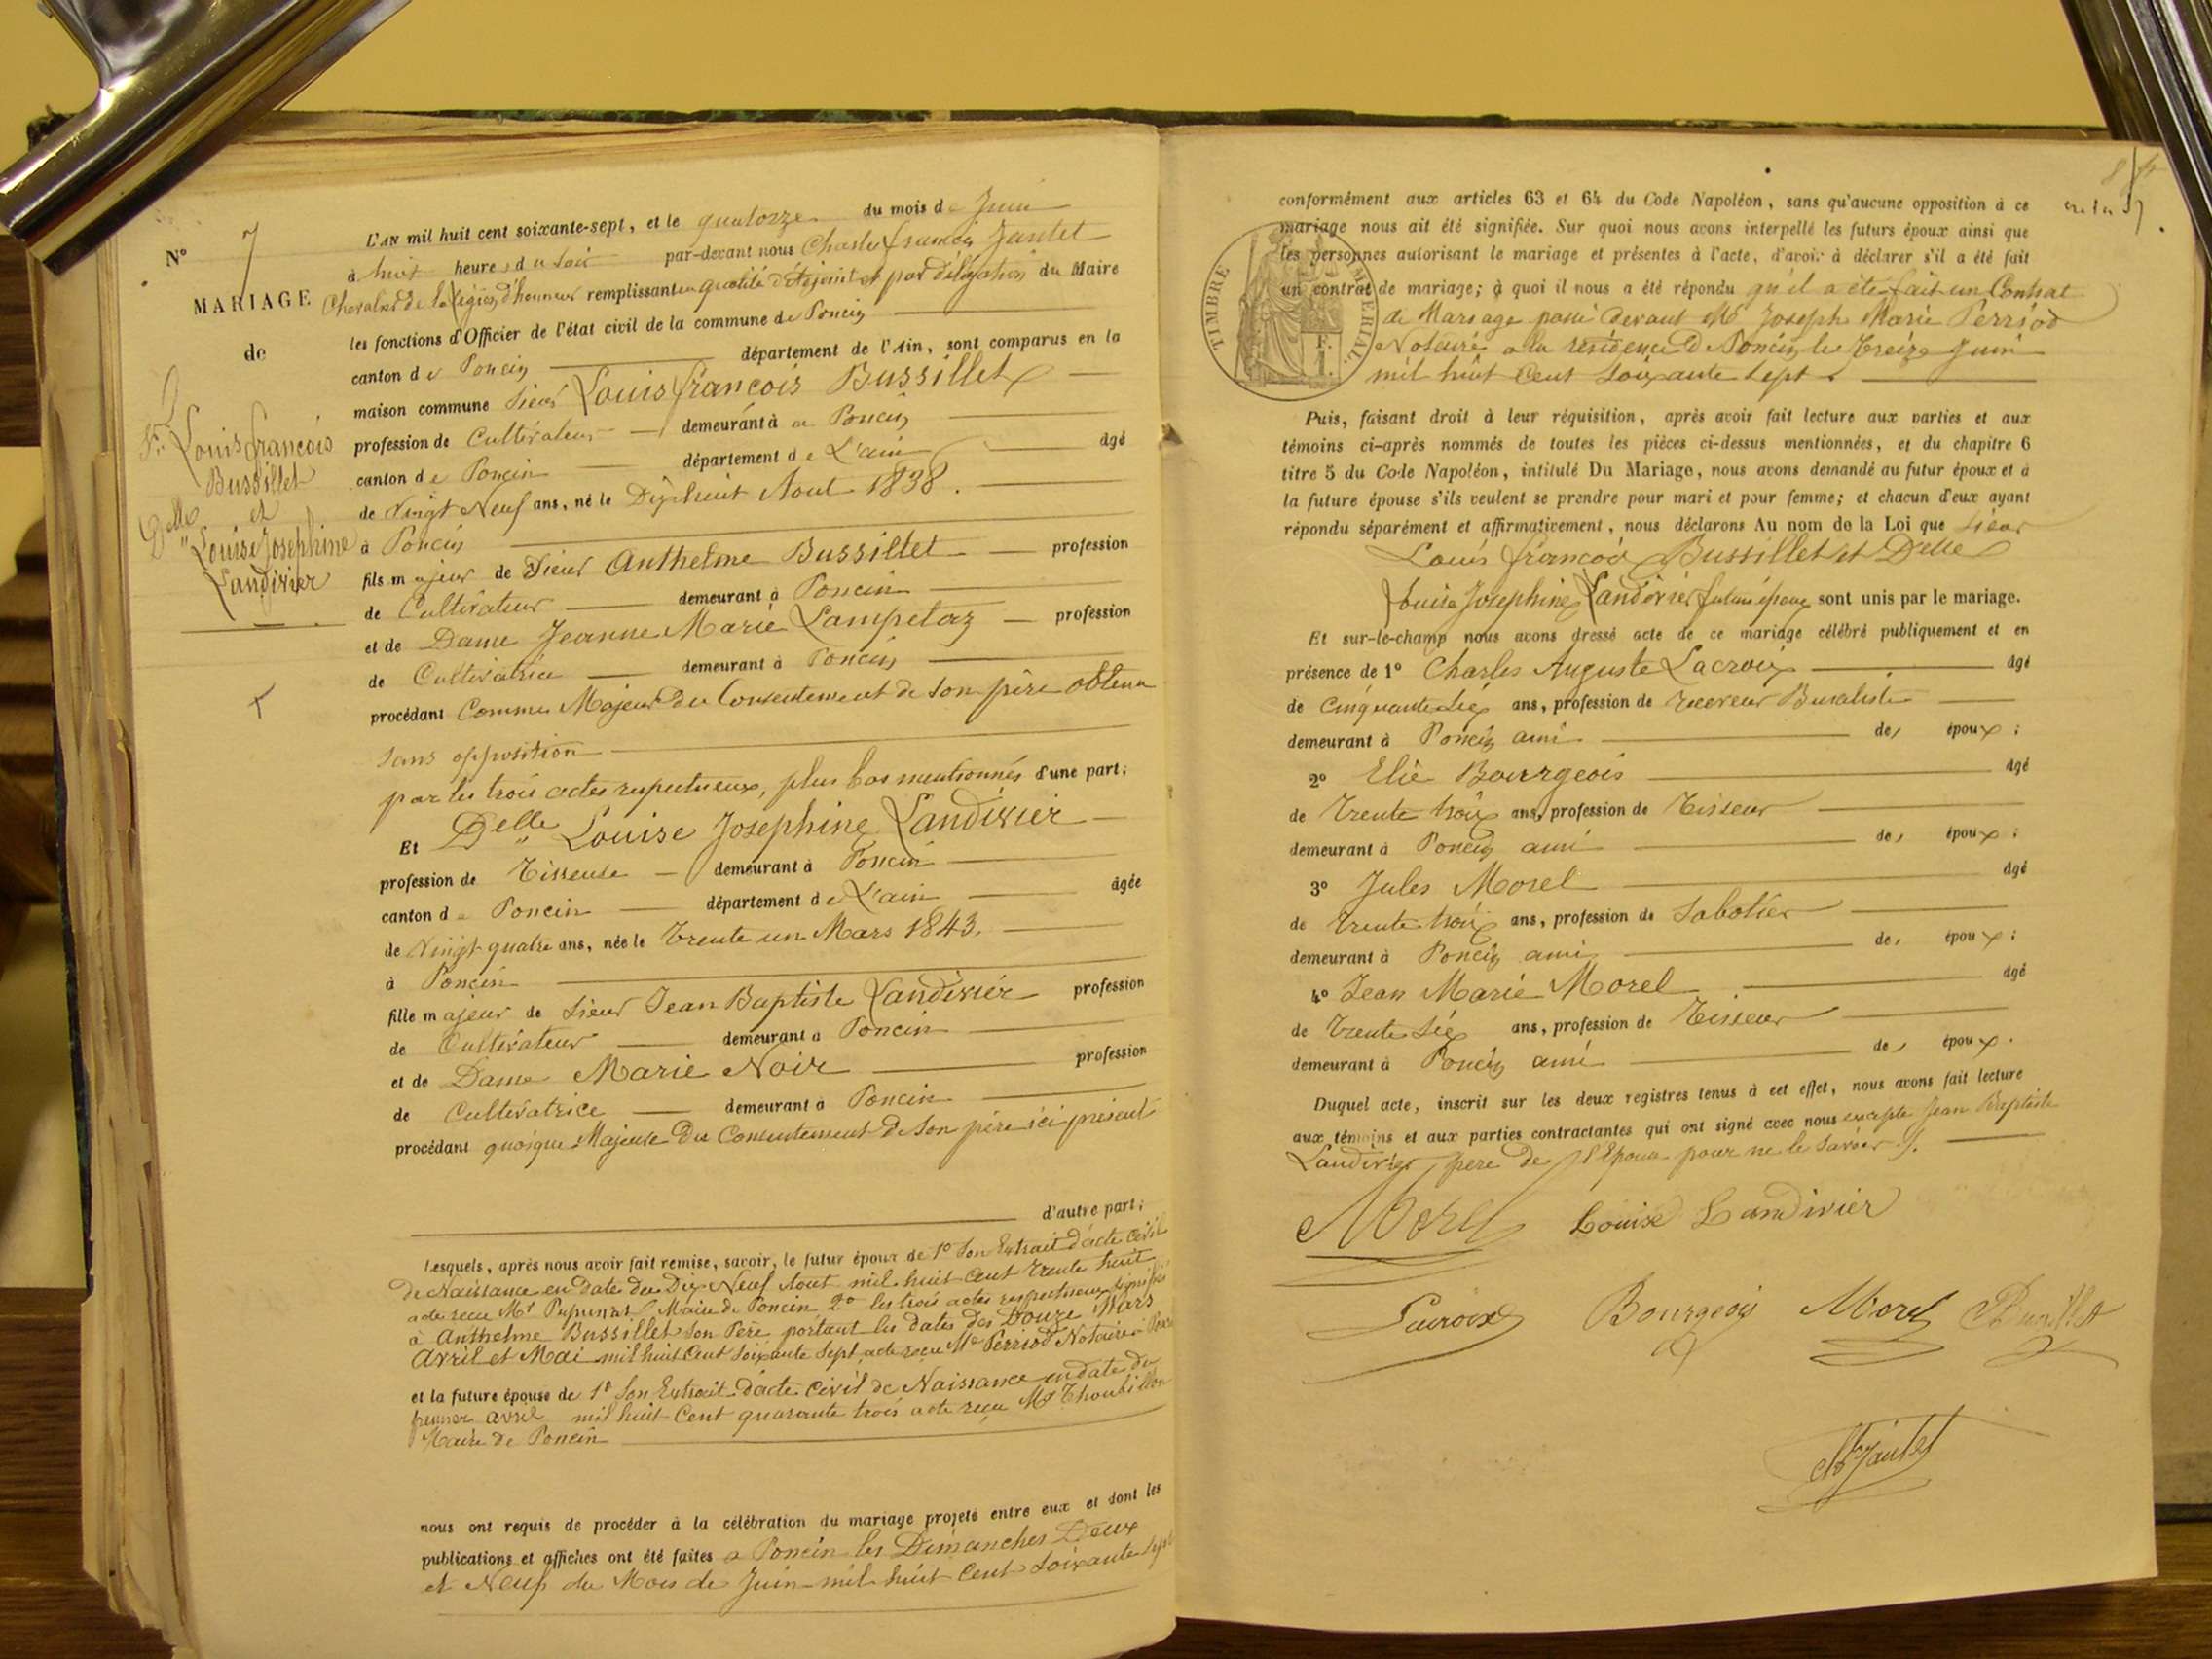 N° 7
MARIAGE
de
Sr. Louis françois
Bussillet
et
Delle Louise Josephine
Landivier
L'AN mil huit cent soixante-sept, et le quatorze du mois de Juin
à huit heures du soir par-devant nous Charles françois Jantet
Chevalier de la Légion d'honneur remplissant en qualité d'Adjoint et par délégation du Maire
les fonctions d'Officier de l'état civil de la commune de Poncin
canton de Poncin département de l'Ain, sont comparus en la
maison commune Sieur Louis françois Bussillet
profession de Cultivateur demeurant à a Poncin
canton de Poncin département de L'ain âgé
de Vingt Neuf ans, né le Dix huit Aout 1838.
à Poncin
fils majeur de Sieur Anthelme Bussillet profession
de Cultivateur demeurant à Poncin
et de Dame Jeanne Marie Lampelaz profession
de Cultivatrice demeurant à Poncin
procédant Comme Majeur du Consentement de son père obtenu
sans opposition
par les trois actes respectueux, plus bas mentionnés d'une part;
Et Delle Louise Josephine Landivier
profession de Tisseuse demeurant à Poncin
canton de Poncin département de L'ain âgée
de Vingt quatre ans, née le Trente un Mars 1843.
à Poncin
fille majeur de Sieur Jean Baptiste Landivier profession
de Cultivateur demeurant à Poncin
et de Dame Marie Noir profession
de Cultivatrice demeurant à Poncin
procédant quoique Majeure Du Consentement de son père ici présent
d'autre part;
Lesquels, après nous avoir fait remise, savoir, le futur époux de 1° Son Extrait d'acte Civil
de Naissance en date du Dix Neuf Aout mil huit Cent Trente huit
acte reçu Mr Maire de Poncin 2° les trois actes respectueux signifiés
à Anthelme Bussillet Son Père portant les dates des Douze Mars
Avril et Mai mil huit Cent Soixante Sept, acte reçu Me Perriod Notaire à
et la future épouse de 1° Son Extrait d'acte Civil de Naissance en date du
premier avril mil huit Cent quarante trois acte reçu Mr
Maire de Poncin
nous ont requis de procéder à la célébration du mariage projeté entre eux et dont les
publications et affiches ont été faites a Poncin les Dimanches Deux
et Neuf du Mois de Juin mil huit Cent Soixante Sept
conformément aux articles 63 et 64 du Code Napoléon, sans qu'aucune opposition à ce
mariage nous ait été signifiée. Sur quoi nous avons interpellé les futurs époux ainsi que
les personnes autorisant le mariage et présentes à l'acte, d'avoir à déclarer s'il a été fait
un contrat de mariage; à quoi il nous a été répondu qu'il a été fait un Contrat
de Mariage passé devant Me Joseph Marie Perriod
Notaire a la résidence de Poncin le Treize Juin
mil huit Cent Soixante Sept.
TIMBRE IMPÉRIAL
1 F.
Puis, faisant droit à leur réquisition, après avoir fait lecture aux parties et aux
témoins ci-après nommés de toutes les pièces ci-dessus mentionnées, et du chapitre 6
titre 5 du Code Napoléon, intitulé Du Mariage, nous avons demandé au futur époux et à
la future épouse s'ils veulent se prendre pour mari et pour femme; et chacun d'eux ayant
répondu séparément et affirmativement, nous déclarons Au nom de la Loi que Sieur
Louis françois Bussillet et Delle
Louise Josephine Landivier futurs époux sont unis par le mariage.
Et sur-le-champ nous avons dressé acte de ce mariage célébré publiquement et en
présence de 1° Charles Auguste Lacroix âgé
de Cinquante Six ans, profession de receveur Buraliste
demeurant à Poncin ami des époux;
2° Elie Bourgeois âgé
de Trente trois ans, profession de Tisseur
demeurant à Poncin ami des époux;
3° Jules Morel âgé
de Trente trois ans, profession de Sabotier
demeurant à Poncin ami des époux;
4° Jean Marie Morel âgé
de Trente Six ans, profession de Tisseur
demeurant à Poncin ami des époux.
Duquel acte, inscrit sur les deux registres tenus à cet effet, nous avons fait lecture
aux témoins et aux parties contractantes qui ont signé avec nous excepté Jean Baptiste
Landivier père de l'Epouse pour ne le savoir.
Morel Louise Landivier
Lacroix Bourgeois Morel Bussillet
Jantet